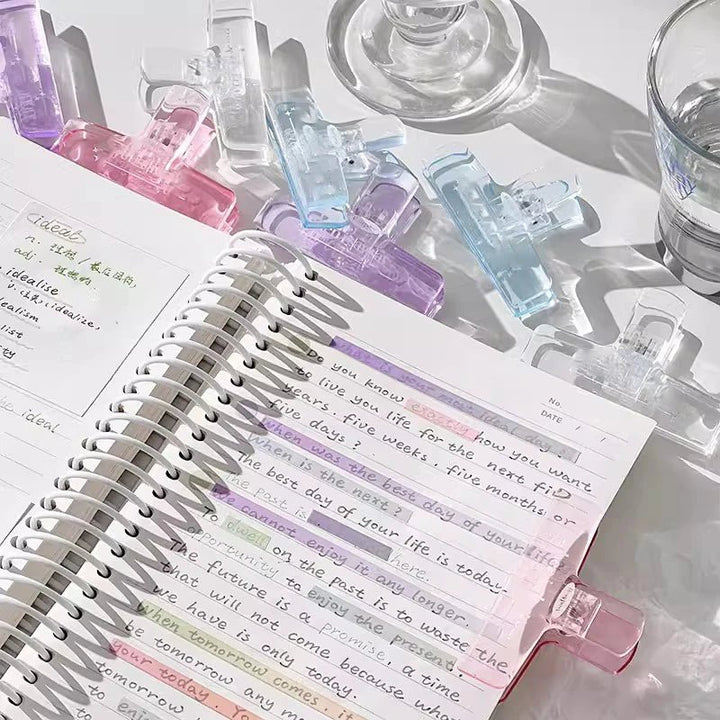 ideal
n: 理想 /
adj: 理想的
idealise
idealize,
dealism
list
ity
ideal
No.
DATE / /
What is your most ideal day.
Do you know exactly how you want
to live you life for the next fiD
years. five weeks. five months or
five days?
When was the best day of your life?
When is the next?
The best day of your life is today.
The past is here.
We cannot enjoy it any longer.
To dwell on the past is to waste the
opportunity to enjoy the present.
The future is a promise, a time
that will not come because what
we have is only today.
When tomorrow comes, it
be tomorrow any mo
your today. Yo
tomorrow
to enjoy
to